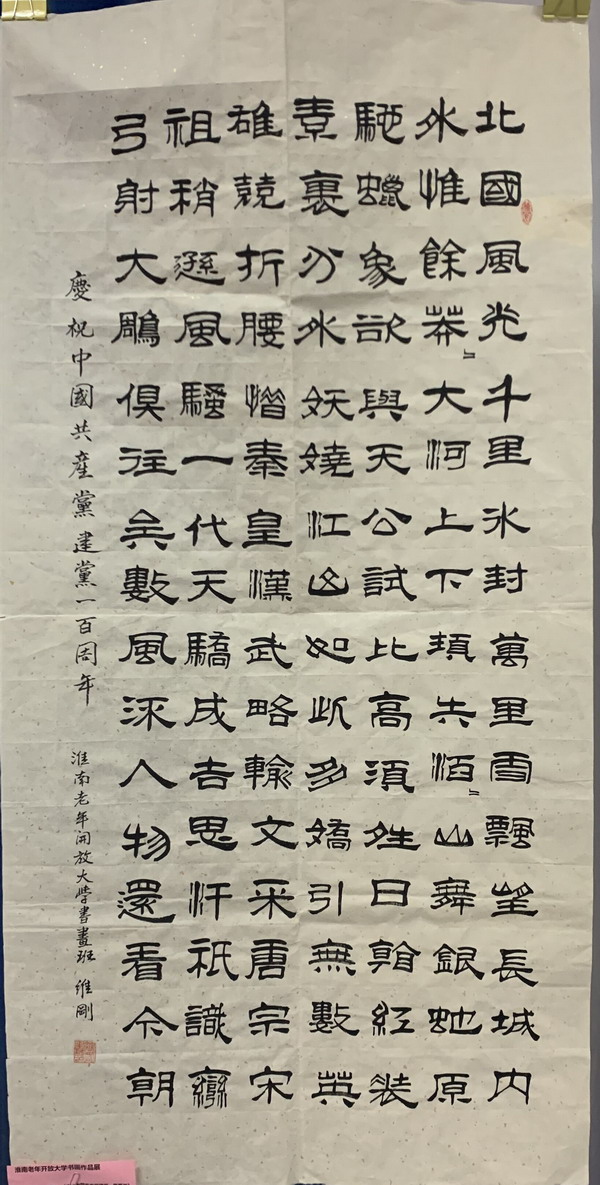 北國風光千里冰封萬里雪飄望長城內
外惟餘莽〻大河上下頓失滔〻山舞銀蛇原
馳蠟象欲與天公試比高須姓日翰紅裝
素裹分外妖嬈江山如此多嬌引無數英
雄競折腰惜秦皇漢武略輸文采唐宗宋
祖稍遜風騷一代天驕成吉思汗祇識彎
弓射大鵰俱往矣數風流人物還看今朝
慶祝中國共產黨建黨一百周年 淮南老年開放大學書畫班 維剛
淮南老年开放大学书画作品展